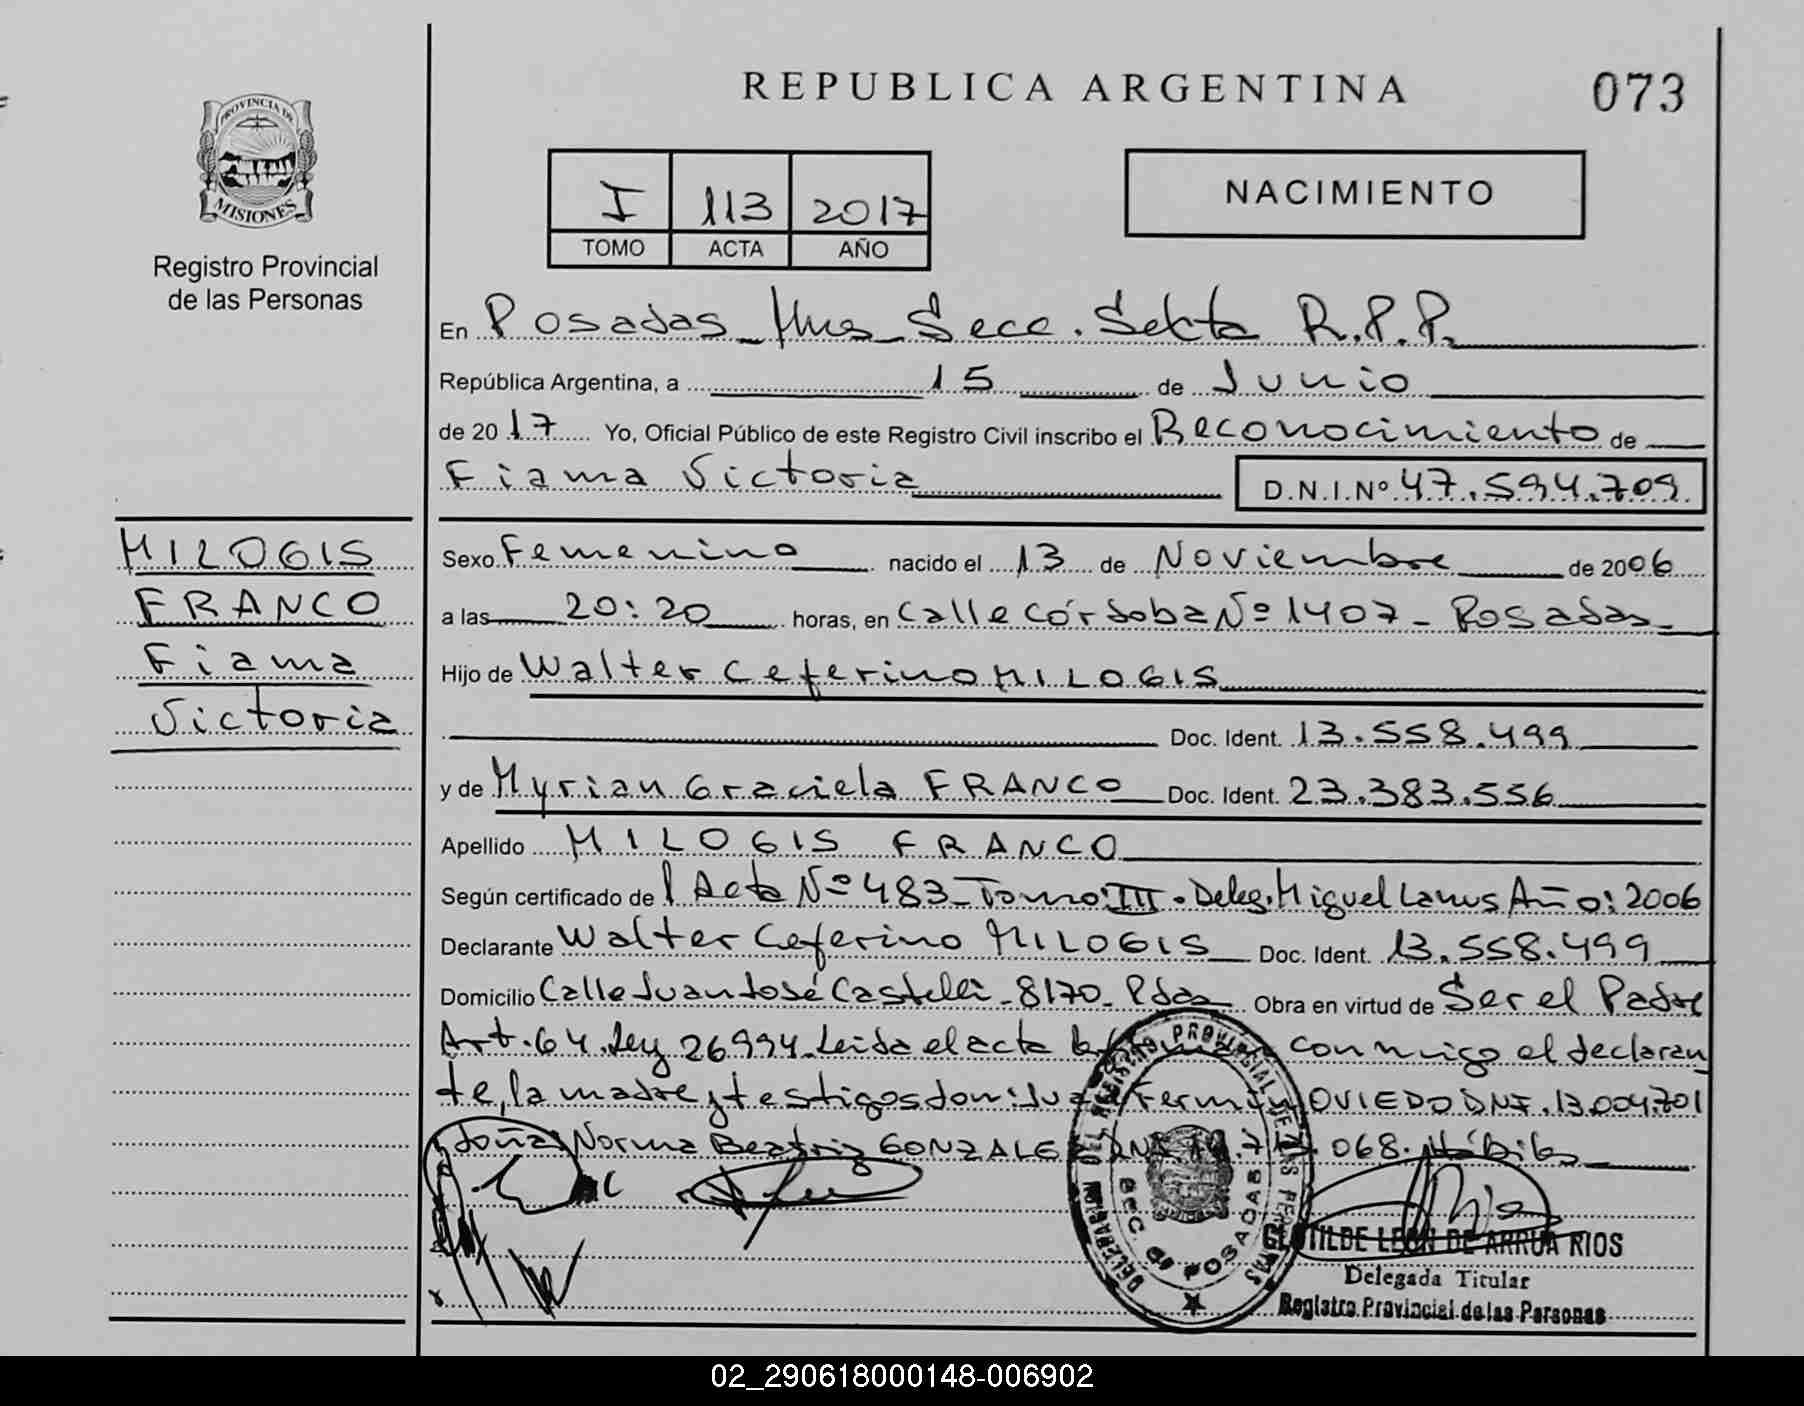 REPUBLICA ARGENTINA
073
PROVINCIA DE
MISIONES
Registro Provincial
de las Personas
I 113 2017
TOMO ACTA AÑO
NACIMIENTO
En Posadas Mnes Secc. Sekta R.P.P.
República Argentina, a 15 de Junio
de 2017 Yo, Oficial Público de este Registro Civil inscribo el Reconocimiento de
Fiama Victoria D.N.I.Nº 47.594.709
MILOGIS
FRANCO
Fiama
Victoria
Sexo Femenino nacido el 13 de Noviembre de 2006
a las 20:20 horas, en Calle Córdoba Nº 1407 - Posadas
Hijo de Walter Ceferino MILOGIS
Doc. Ident. 13.558.499
y de Myrian Graciela FRANCO Doc. Ident. 23.383.556
Apellido MILOGIS FRANCO
Según certificado de Acta Nº 483 - Tomo: III. Deleg. Miguel Lanus Año: 2006
Declarante Walter Ceferino MILOGIS Doc. Ident. 13.558.499
Domicilio Calle Juan José Castelli - 8170 - Pdas Obra en virtud de Ser el Padre
Art. 64. Ley 26994. Leida el acta la conmigo el declaran
te, la madre y testigos don: Juan Fermin OVIEDO DNI. 13.004.701
doña Norma Beatriz GONZALE DNI 068. Hábiles
DELEGACION DEL REGISTRO PROVINCIAL DE LAS PERSONAS
SEC. 6ª POSADAS
CLOTILDE LEON DE ARRUA RIOS
Delegada Titular
Registro Provincial de las Personas
02_290618000148-006902